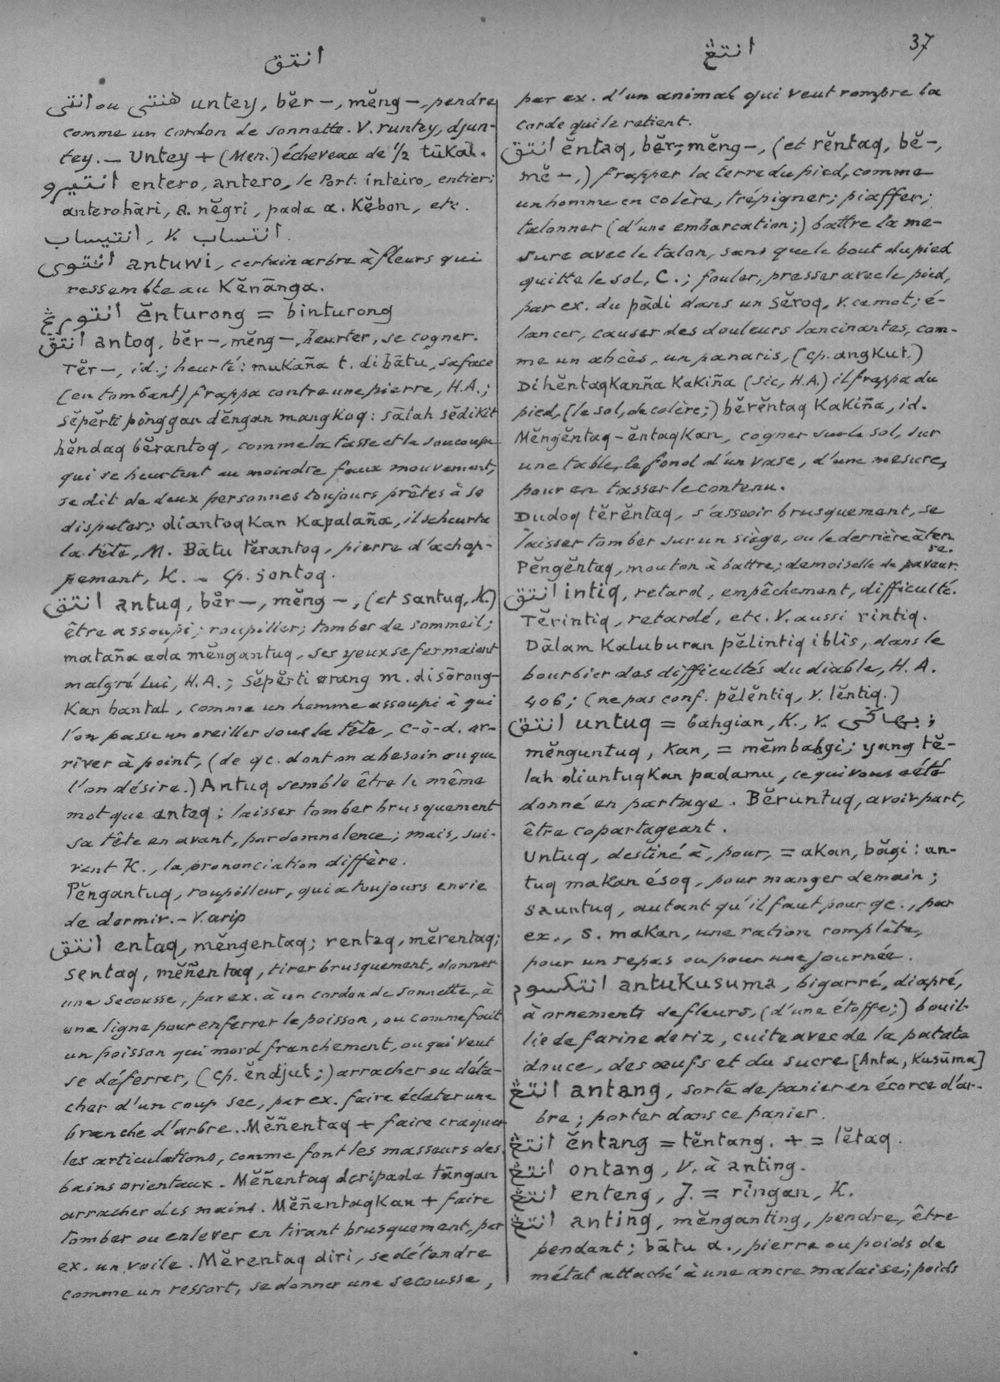 انتق
انتڠ
37
انتى ou هنتى untey, bĕr —, mĕng —, pendre
comme un cordon de sonnette. V. runtey, djun-
tey. — Untey + (Men.) écheveau de 1/2 tūkal.
انتيرو entero, antero, le Port. inteiro, entier:
anterohāri, a. nĕgri, pada a. Kĕbon, etc.
انتيساب, V. انتساب.
انتوى antuwi, certain arbre à fleurs qui
ressemble au Kĕnānga.
انتورڠ ĕnturong = binturong
انتق antoq, bĕr —, mĕng —, heurter, se cogner.
Tĕr —, id.; heurté: mukaña t. di bātu, sa face
(en tombant) frappa contre une pierre, H.A.;
sĕpĕrti pinggan dĕngan mangkoq: sālah sĕdikit
hĕndaq bĕrantoq, comme la tasse et la soucoupe
qui se heurtent au moindre faux mouvement,
se dit de deux personnes toujours prêtes à se
disputer; diantoqkan kapalaña, il se heurta
la tête, M. Bātu tĕrantoq, pierre d'achop-
pement, K. — Cp. jontoq.
انتق antuq, bĕr —, mĕng —, (et santuq, K.)
être assoupi; roupiller; tomber de sommeil;
mataña ada mĕngantuq, ses yeux se fermaient
malgré lui, H.A.; Sĕpĕrti orang m. disōrong-
kan bantal, comme un homme assoupi à qui
l'on passe un oreiller sous la tête, c-à-d. ar-
river à point, (de qc. dont on a besoin ou que
l'on désire.) Antuq semble être le même
mot que antoq: laisser tomber brusquement
sa tête en avant, par somnolence; mais, sui-
vant K., la prononciation diffère.
Pĕngantuq, roupilleur, qui a toujours envie
de dormir. — V. arip
انتق entaq, mĕngentaq; rentaq, mĕrentaq;
sentaq, mĕñentaq, tirer brusquement, donner
une secousse, par ex. à un cordon de sonnette, à
une ligne pour enferrer le poisson, ou comme fait
un poisson qui mord franchement, ou qui veut
se déferrer, (cp. ĕndjut;) arracher ou déta-
cher d'un coup sec, par ex. faire éclater une
branche d'arbre. Mĕñentaq + faire craquer
les articulations, comme font les masseurs des
bains orientaux. Mĕñentaq deripada tāngan
arracher des mains. Mĕñentaqkan + faire
tomber ou enlever en tirant brusquement, par
ex. un voile. Mĕrentaq diri, se détendre
comme un ressort, se donner une secousse,
par ex. d'un animal qui veut rompre la
corde qui le retient.
انتق ĕntaq, bĕr —, mĕng —, (et rĕntaq, bĕ —,
mĕ —,) frapper la terre du pied, comme
un homme en colère, trépigner; piaffer;
talonner (d'une embarcation;) battre la me-
sure avec le talon, sans que le bout du pied
quitte le sol, C.; fouler, presser avec le pied,
par ex. du pādi dans un sĕroq, V. ce mot; é-
lancer, causer des douleurs lancinantes, com-
me un abcès, un panaris, (cp. angkut.)
Dihĕntaqkanña kakiña (sic, H.A.) il frappa du
pied, (le sol, de colère;) bĕrĕntaq kakiña, id.
Mĕngĕntaq-ĕntaqkan, cogner sur le sol, sur
une table, le fond d'un vase, d'une mesure,
pour en tasser le contenu.
Dudoq tĕrĕntaq, s'asseoir brusquement, se
laisser tomber sur un siège, ou le derrière à ter-
re.
Pĕngĕntaq, mouton à battre; demoiselle de paveur.
انتق intiq, retard, empêchement, difficulté.
Tĕrintiq, retardé, etc. V. aussi rintiq.
Dālam kaluburan pĕlintiq iblis, dans le
bourbier des difficultés du diable, H.A.
406; (ne pas conf. pĕlĕntiq, V. lĕntiq.)
انتق untuq = bahgian, K., V. بهاگى;
mĕnguntuq, kan, = mĕmbahgi; yang tĕ-
lah diuntuqkan padamu, ce qui vous a été
donné en partage. Bĕruntuq, avoir part,
être copartageant.
Untuq, destiné à, pour, = akan, bāgi: un-
tuq makan ésoq, pour manger demain;
sauntuq, autant qu'il faut pour qc., par
ex., s. makan, une ration complète,
pour un repas ou pour une journée.
انتكسوم antukusuma, bigarré, diapré,
à ornements de fleurs, (d'une étoffe;) bouil-
lie de farine de riz, cuite avec de la patate
douce, des œufs et du sucre [Anta, Kusūma]
انتڠ antang, sorte de panier en écorce d'ar-
bre; porter dans ce panier.
انتڠ ĕntang = tĕntang. + = lĕtaq.
انتڠ ontang, V. à anting.
انتڠ enteng, J. = rīngan, K.
انتڠ anting, mĕnganting, pendre, être
pendant; bātu a., pierre ou poids de
métal attaché à une ancre malaise; poids